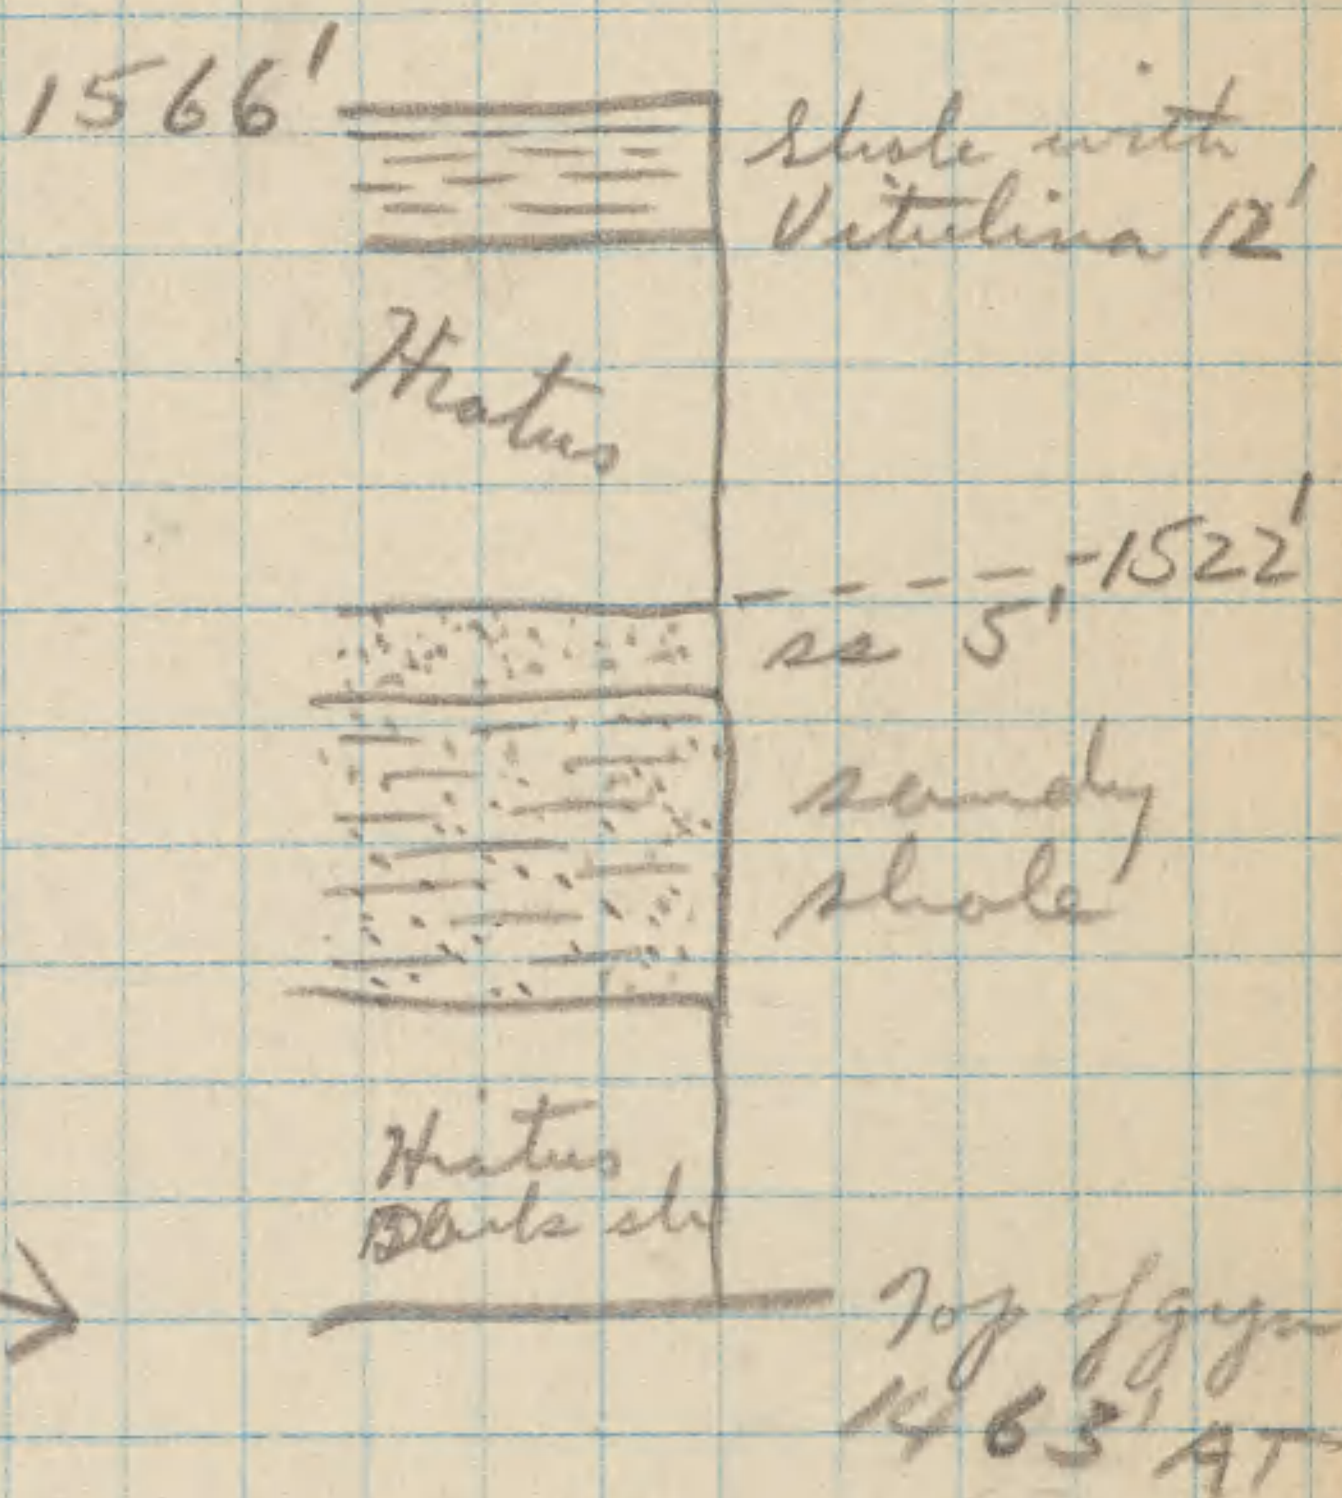 1566'
Shale with
Vitulina 12'
Hiatus
-1522'
ss 5'
sandy
shale
Hiatus
Dark sh
Top of gyp
1463' AT